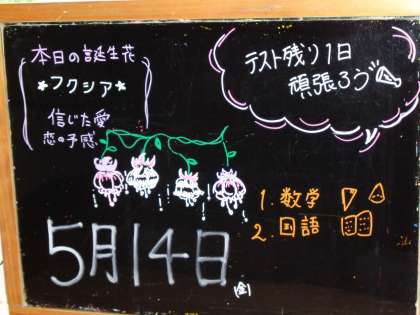 本日の誕生花
*フクシア*
信じた愛
恋の予感
テスト残り1日
頑張ろう
1. 数学
2. 国語
5月14日
(金)